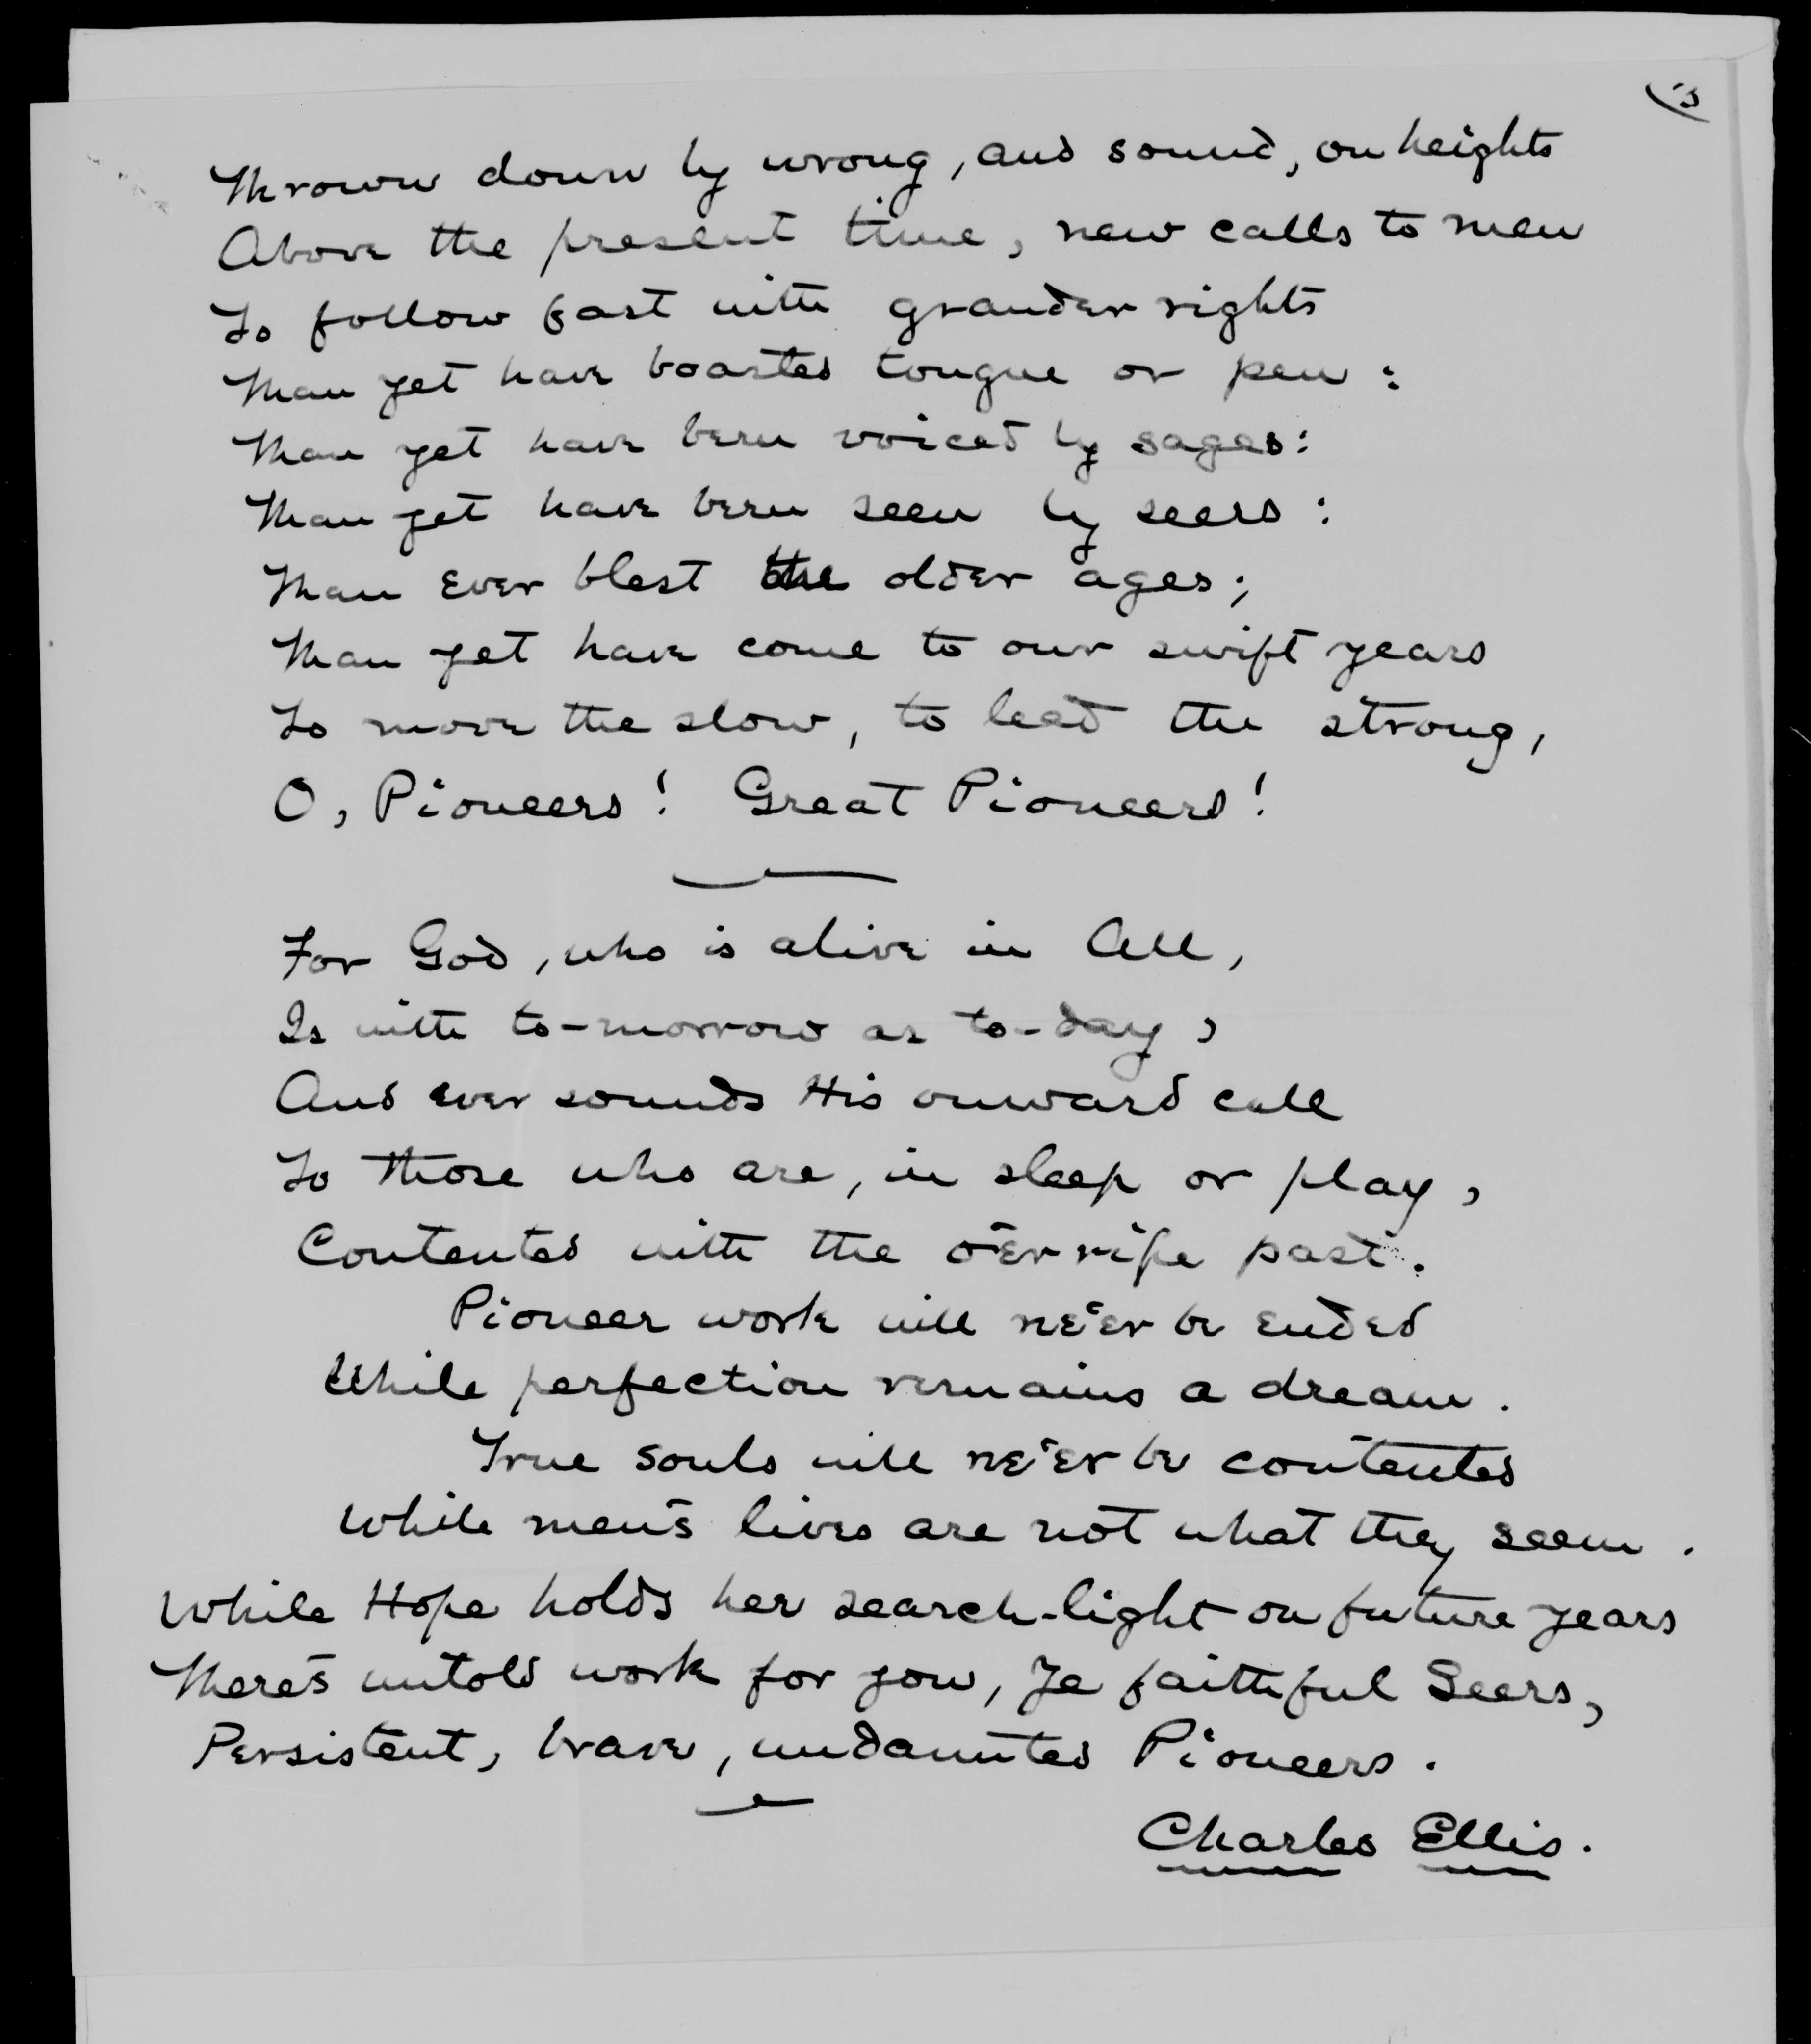 Thrown down by wrong, and sound, on heights
Above the present time, new calls to men
To follow fast with grander rights
Than yet have boasted tongue or pen:
Than yet have been voiced by sages:
Than yet have been seen by seers:
Than ever blest the older ages;
Than yet have come to our swift years
To move the slow, to lead the strong,
O, Pioneers! Great Pioneers!
For God, who is alive in All,
Is with to-morrow as to-day,
And ever sounds His onward call
To those who are, in sleep or play,
Contented with the o'er ripe past.
Pioneer work will ne'er be ended
While perfection remains a dream.
True souls will ne'er be contented
While men's lives are not what they seem.
While Hope holds her search-light on future years
There's untold work for you, Ye faithful Seers,
Persistent, brave, undaunted Pioneers.
Charles Ellis.